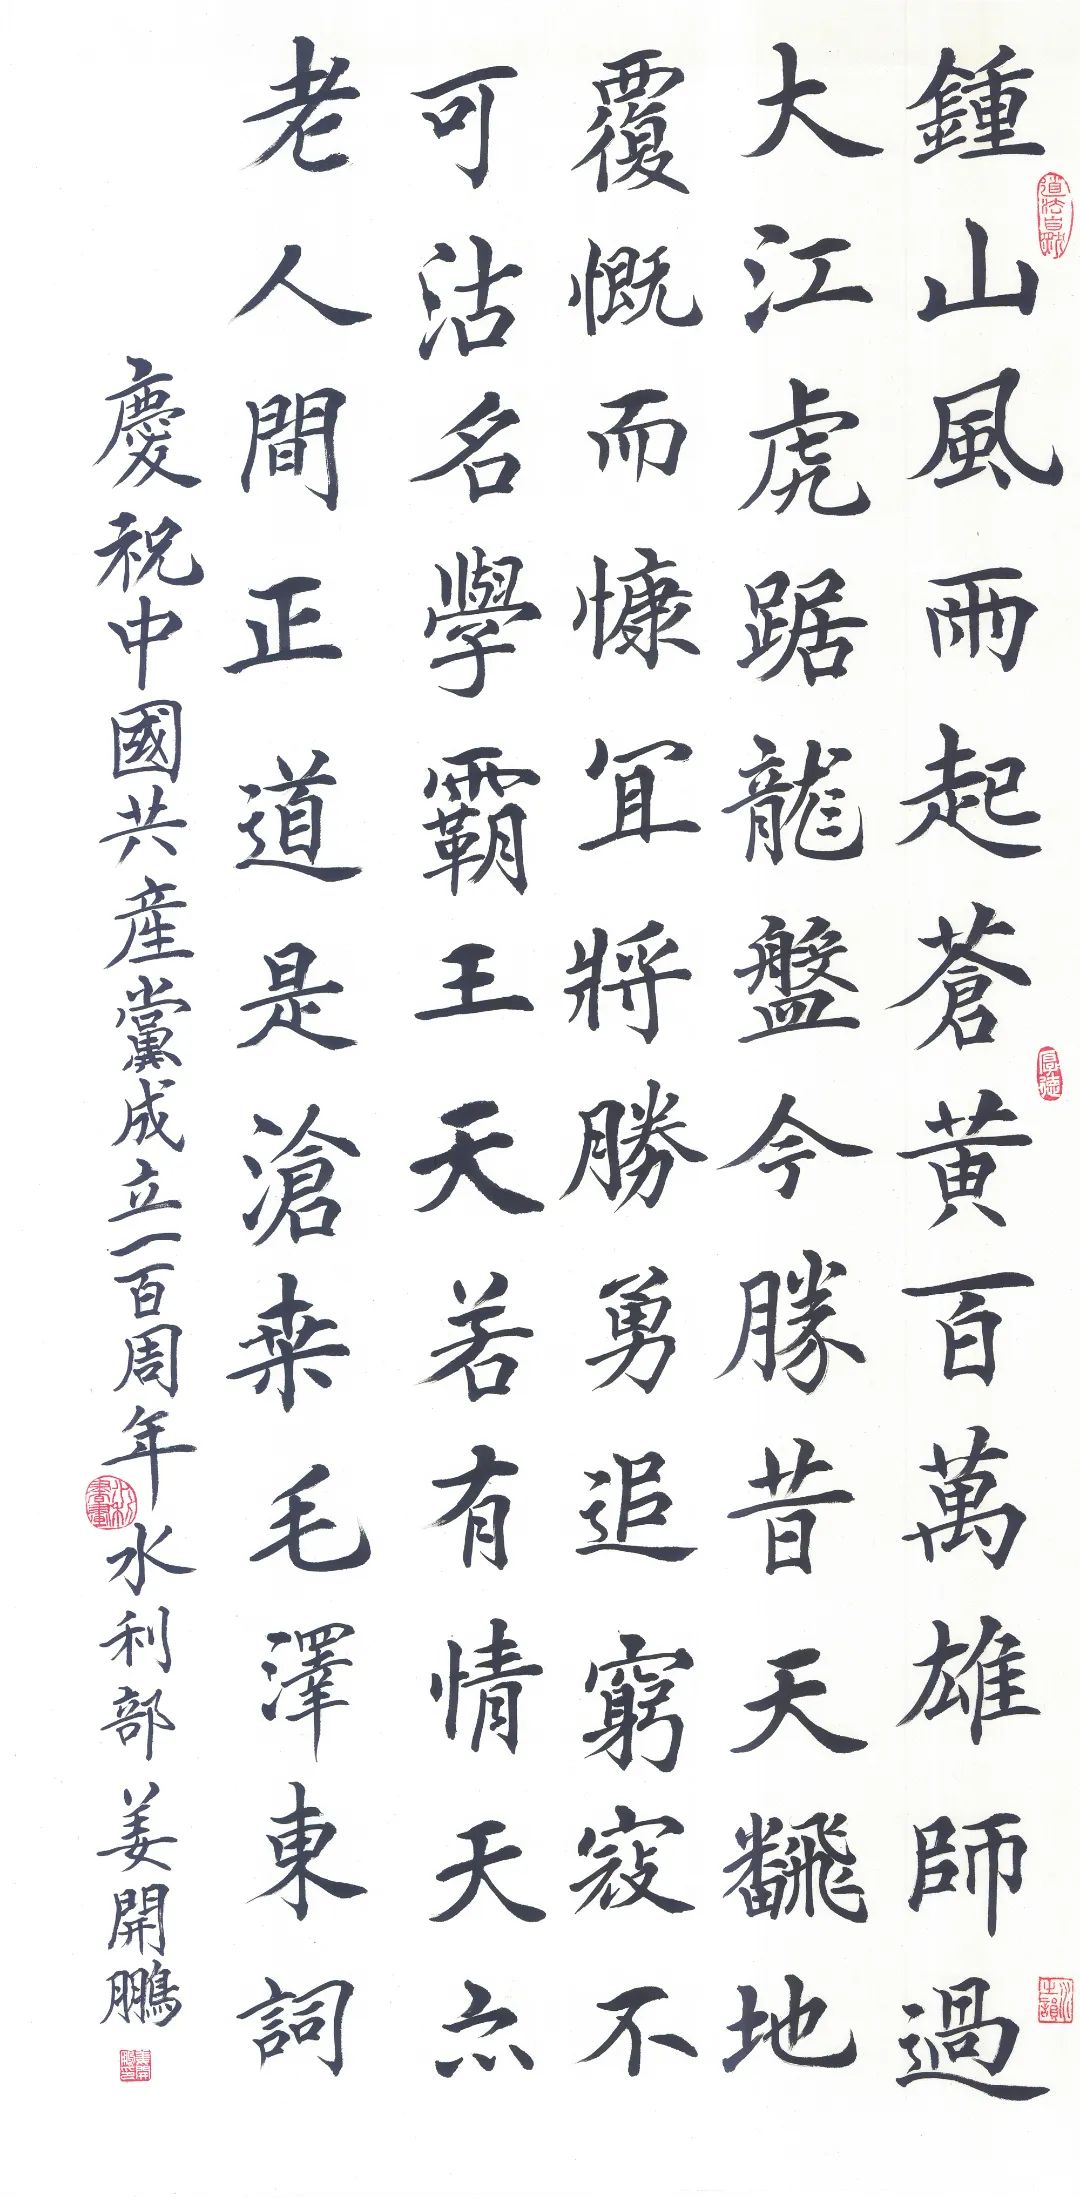 鍾山風雨起蒼黄百萬雄師過
大江虎踞龍盤今勝昔天飜地
覆慨而慷宜將勝勇追窮寇不
可沽名學霸王天若有情天亦
老人間正道是滄桒毛澤東詞
慶祝中國共産黨成立一百周年水利部姜開鵬
道法自然
厚德